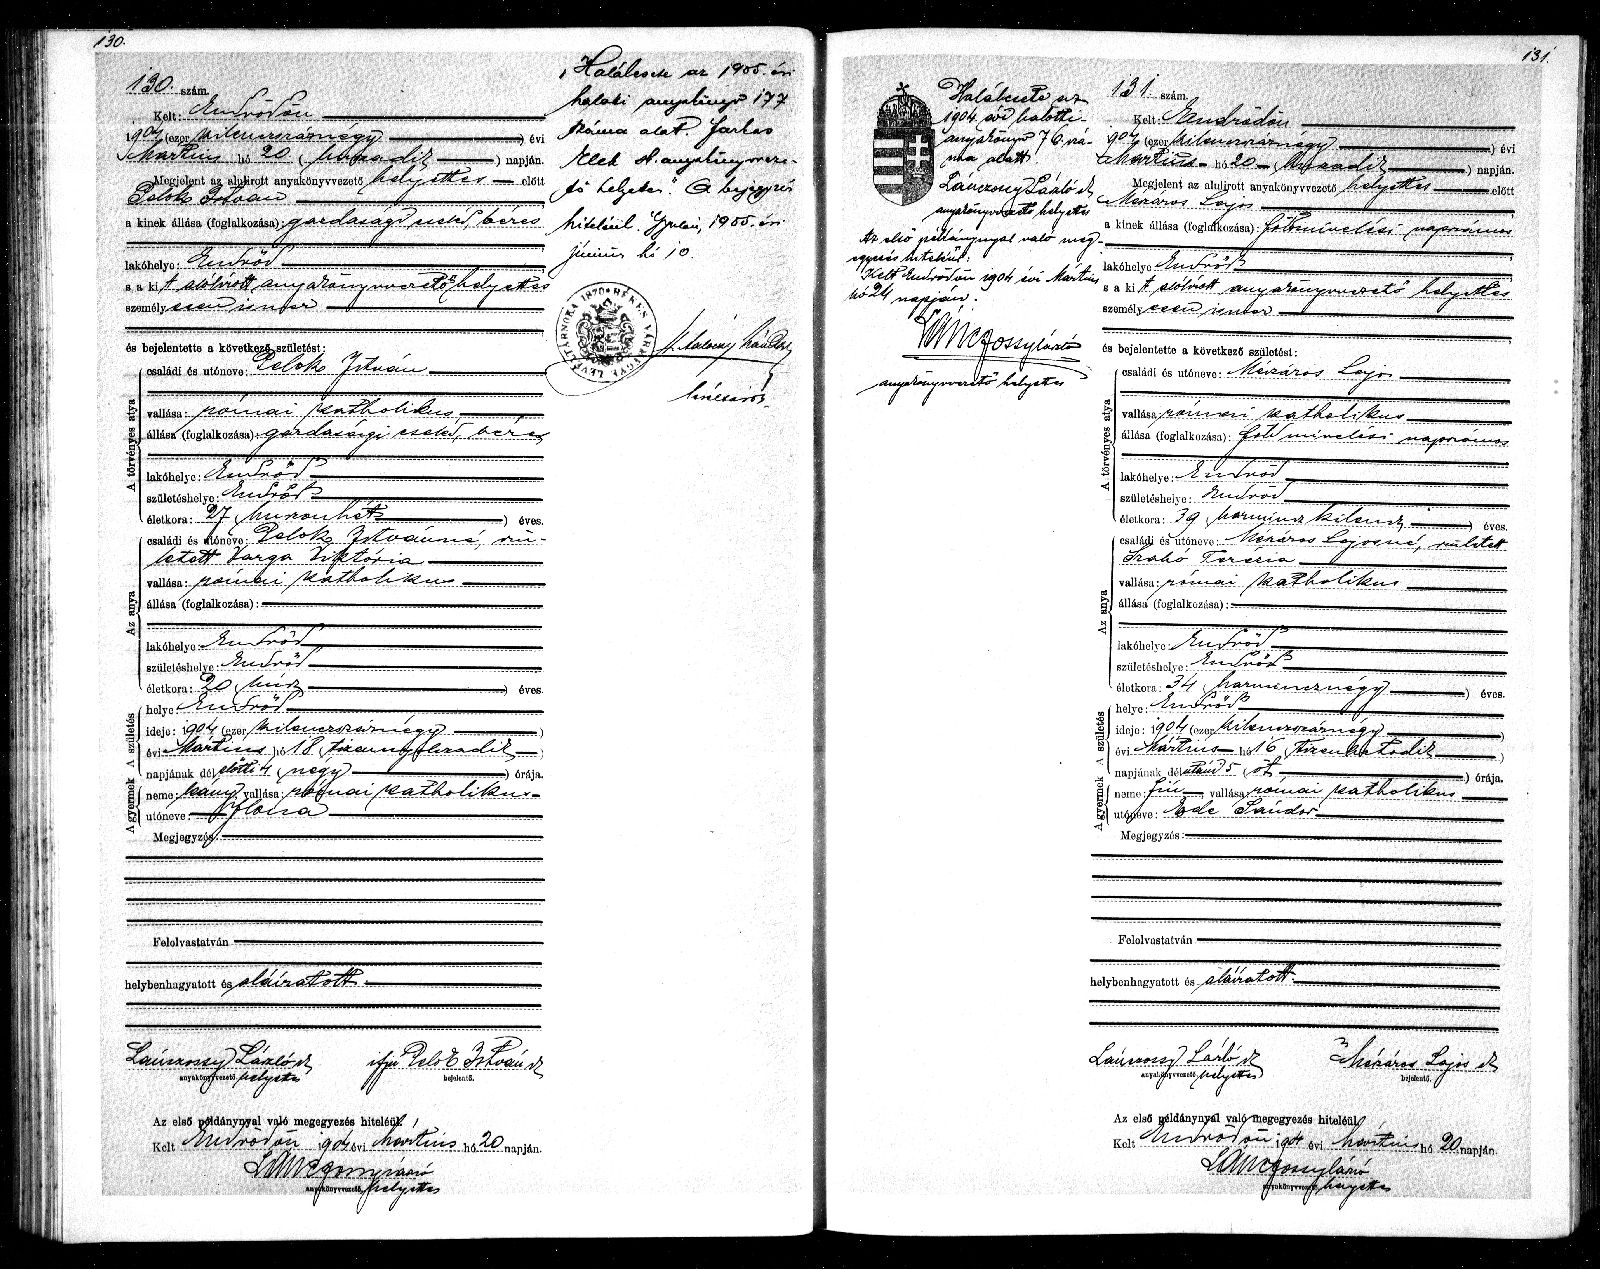 130.
130. szám.
Kelt: Endrődön
1904 (ezer kilenczszáznégy) évi
Mártius hó 20 (huszadik) napján.
Megjelent az alulirott anyakönyvvezető helyettes előtt
Pelok István
a kinek állása (foglalkozása): gazdasági cseléd, béres
lakóhelye: Endrőd
s a kit alólirott anyakönyvvezető helyettes
személyesen ismer
és bejelentette a következő születést:
A törvényes atya
családi és utóneve: Pelok István
vallása: római katholikus
állása (foglalkozása): gazdasági cseléd, béres
lakóhelye: Endrőd
születéshelye: Endrőd
életkora: 27 (huszonhét) éves.
Az anya
családi és utóneve: Pelok Istvánné, szü-
letett Varga Viktória
vallása: római katholikus
állása (foglalkozása):
lakóhelye: Endrőd
születéshelye: Endrőd
életkora: 20 (húsz) éves.
A születés
helye: Endrőd
ideje: 1904 (ezer kilenczszáznégy)
évi Mártius hó 18 (tizennyolczadik)
napjának délelőtti 4 (négy) órája.
A gyermek
neme: leány vallása: római katholikus
utóneve: Ilona
Megjegyzés:
Felolvastatván
helybenhagyatott és aláiratott.
Lánczossy László sk ifju Pelok István sk
anyakönyvvezető helyettes bejelentő.
Az első példánynyal való megegyezés hiteléül.
Kelt Endrődön 1904 évi Mártius hó 20 napján.
Lánczossy László
anyakönyvvezető helyettes
Halálesete az 1905. évi
halotti anyakönyv 177
száma alatt. Farkas
Elek sk. anyakönyvveze-
tő helyettes". A bejegyzés
hiteléül. Gyulán, 1905. évi
június hó 10.
BÉKÉS VÁRMEGYE LEVÉLTÁRNOKA 1870
131.
Halálesete az
1904. évi halotti
anyakönyv 76 szá-
ma alatt.
Lánczossy László sk
anyakönyvvezető helyettes
Az első példánynyal való meg-
egyezés hiteléül.
Kelt Endrődön 1904 évi Mártius
hó 24 napján.
Lánczossy László
anyakönyvvezető helyettes
131. szám.
Kelt: Endrődön
1904 (ezer kilenczszáznégy) évi
Mártius hó 20 (huszadik) napján.
Megjelent az alulirott anyakönyvvezető helyettes előtt
Mészáros Lajos
a kinek állása (foglalkozása): földmivelési napszámos
lakóhelye: Endrőd
s a kit alólirott anyakönyvvezető helyettes
személyesen ismer
és bejelentette a következő születést:
A törvényes atya
családi és utóneve: Mészáros Lajos
vallása: római katholikus
állása (foglalkozása): földmivelési napszámos
lakóhelye: Endrőd
születéshelye: Endrőd
életkora: 39 (harminczkilencz) éves.
Az anya
családi és utóneve: Mészáros Lajosné, született
Szabó Terézia
vallása: római katholikus
állása (foglalkozása):
lakóhelye: Endrőd
születéshelye: Endrőd
életkora: 34 (harmincznégy) éves.
A születés
helye: Endrőd
ideje: 1904 (ezer kilenczszáznégy)
évi Mártius hó 16 (tizenhatodik)
napjának délután 5 (öt) órája.
A gyermek
neme: fiú vallása: római katholikus
utóneve: Ede Sándor
Megjegyzés:
Felolvastatván
helybenhagyatott és aláiratott.
Lánczossy László sk Mészáros Lajos sk
anyakönyvvezető helyettes bejelentő.
Az első példánynyal való megegyezés hiteléül.
Kelt Endrődön 1904 évi Mártius hó 20 napján.
Lánczossy László
anyakönyvvezető helyettes